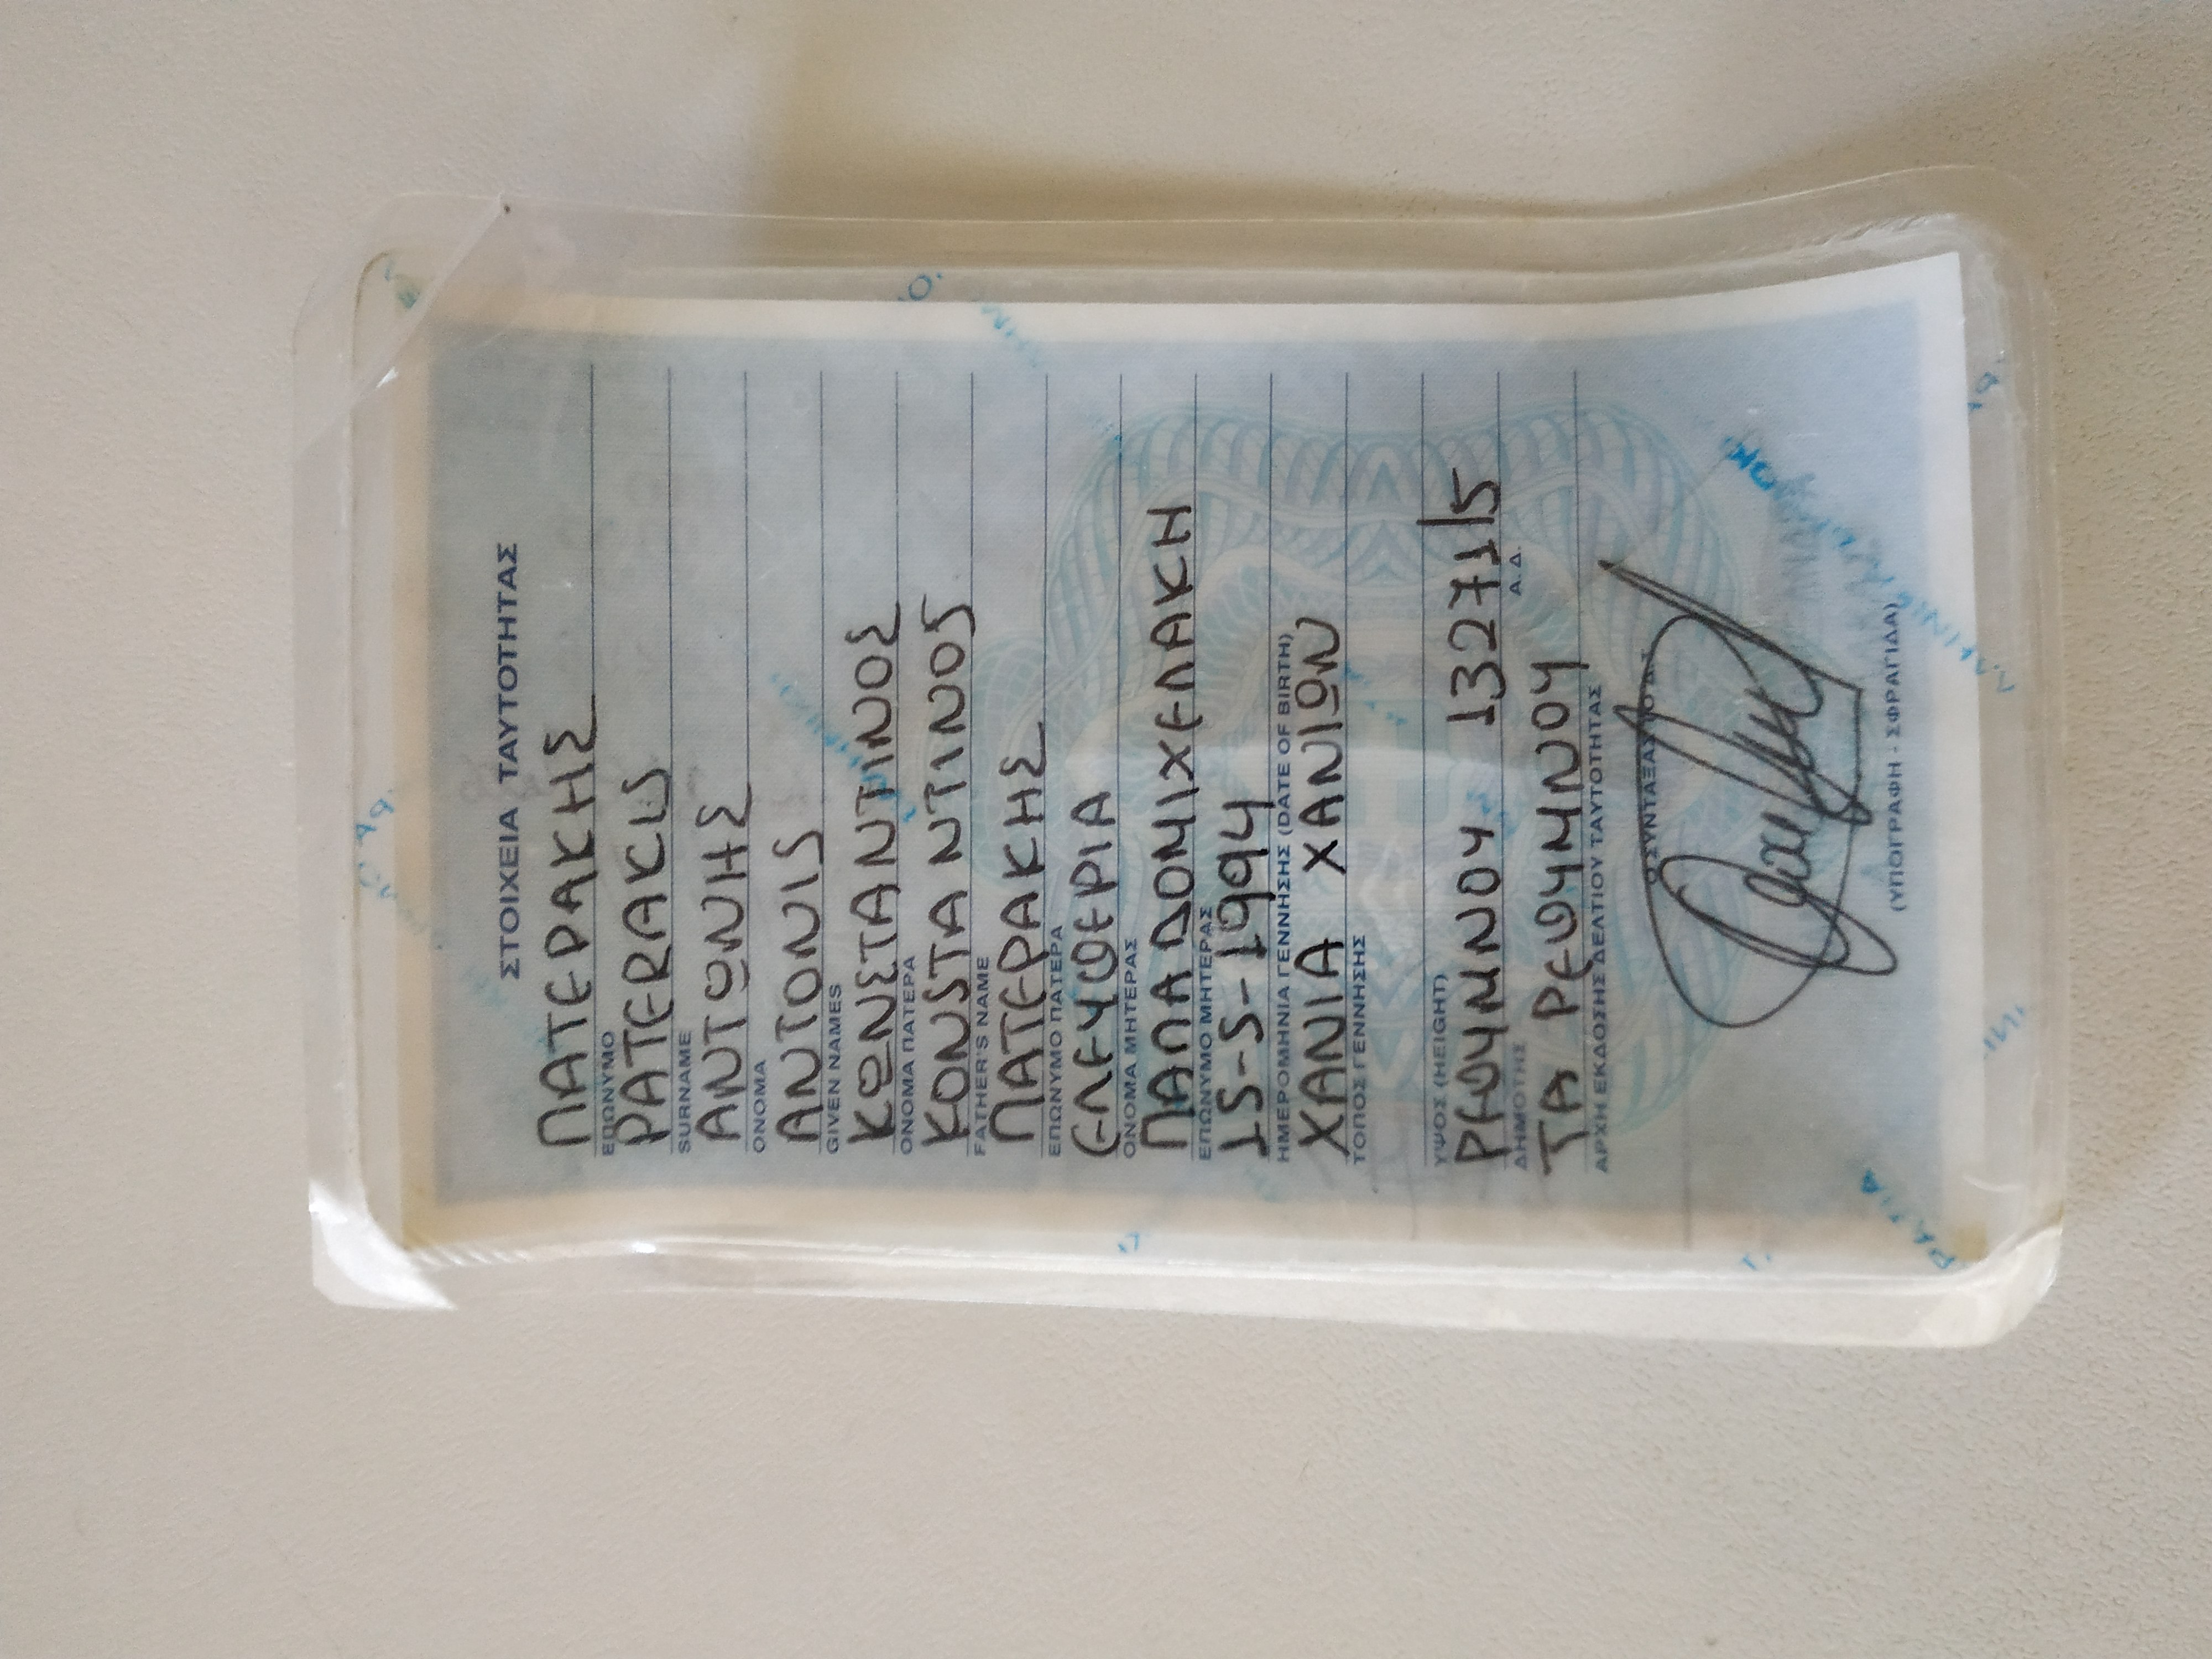 ΣΤΟΙΧΕΙΑ ΤΑΥΤΟΤΗΤΑΣ
ΠΑΤΕΡΑΚΗΣ
ΕΠΩΝΥΜΟ
PATERAKIS
SURNAME
ΑΝΤΩΝΗΣ
ΟΝΟΜΑ
ANTONIS
GIVEN NAMES
ΚΩΝΣΤΑΝΤΙΝΟΣ
ΟΝΟΜΑ ΠΑΤΕΡΑ
KONSTANTINOS
FATHER'S NAME
ΠΑΤΕΡΑΚΗΣ
ΕΠΩΝΥΜΟ ΠΑΤΕΡΑ
ΕΛΕΥΘΕΡΙΑ
ΟΝΟΜΑ ΜΗΤΕΡΑΣ
ΠΑΠΑΔΟΜΙΧΕΛΑΚΗ
ΕΠΩΝΥΜΟ ΜΗΤΕΡΑΣ
15-5-1994
ΗΜΕΡΟΜΗΝΙΑ ΓΕΝΝΗΣΗΣ (DATE OF BIRTH)
ΧΑΝΙΑ ΧΑΝΙΩΝ
ΤΟΠΟΣ ΓΕΝΝΗΣΗΣ
ΥΨΟΣ (HEIGHT)
ΡΕΘΥΜΝΟΥ 13271/5
ΔΗΜΟΤΗΣ Α. Δ.
ΤΑ ΡΕΘΥΜΝΟΥ
ΑΡΧΗ ΕΚΔΟΣΗΣ ΔΕΛΤΙΟΥ ΤΑΥΤΟΤΗΤΑΣ
Ο ΣΥΝΤΑΞΑΣ ΤΟ Δ.Τ.
(ΥΠΟΓΡΑΦΗ - ΣΦΡΑΓΙΔΑ)